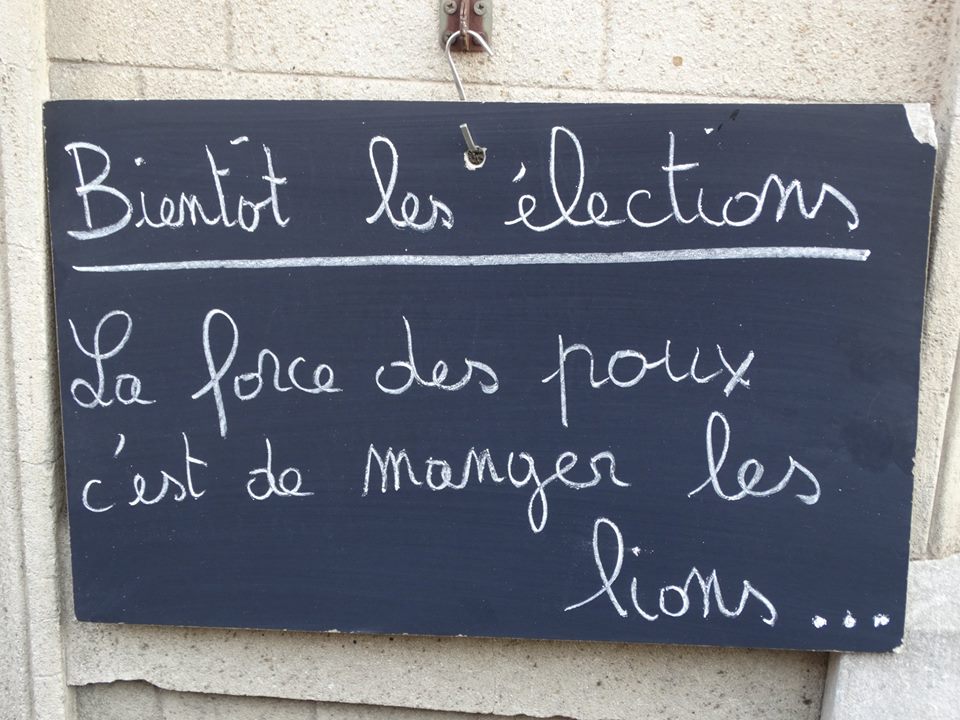 Bientôt les élections
La force des poux
c'est de manger les
lions...